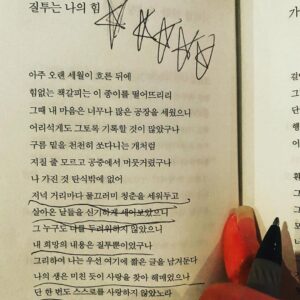 질투는 나의 힘
아주 오랜 세월이 흐른 뒤에
힘없는 책갈피는 이 종이를 떨어뜨리리
그때 내 마음은 너무나 많은 공장을 세웠으니
어리석게도 그토록 기록할 것이 많았구나
구름 밑을 천천히 쏘다니는 개처럼
지칠 줄 모르고 공중에서 머뭇거렸구나
나 가진 것 탄식밖에 없어
저녁 거리마다 물끄러미 청춘을 세워두고
살아온 날들을 신기하게 세어보았으니
그 누구도 나를 두려워하지 않았으니
내 희망의 내용은 질투뿐이었구나
그리하여 나는 우선 여기에 짧은 글을 남겨둔다
나의 생은 미친 듯이 사랑을 찾아 헤매었으나
단 한 번도 스스로를 사랑하지 않았노라